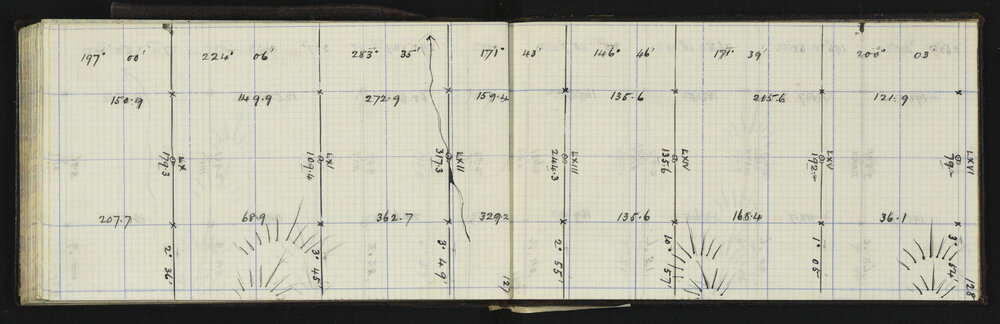 197° 00' 224° 06' 283° 35' 171° 43' 146° 46' 171° 39' 200° 03'
150.9 149.9 272.9 159.4 135.6 215.6 121.9
LX LXI LXII LXIII LXIV LXV LXVI
179.3 109.4 317.3 244.3 135.6 192.- 79.-
207.7 68.9 362.7 329.2 135.6 168.4 36.1
2° 36' 3° 45' 3° 49' 2° 55' 10° 57' 1° 05' 3° 54'
127 128